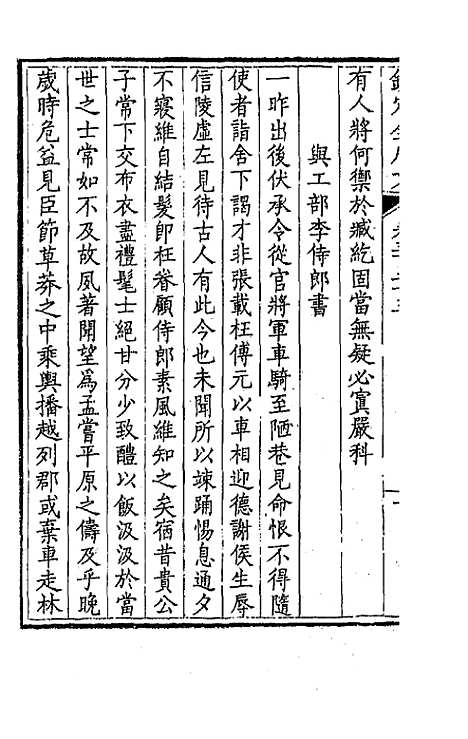 有人將何禦於臧紇固當無疑必寘嚴科
與工部李侍郎書
一昨出後伏承令從官將軍車騎至陋巷見命恨不得隨
使者詣舍下謁才非張載枉傅元以車相迎德謝侯生辱
信陵虛左見待古人有此今也未聞所以竦踊惕息通夕
不寢維自結髮即枉眷顧侍郎素風維知之矣宿昔貴公
子常下交布衣盡禮髦士絕甘分少致醴以飯汲汲於當
世之士常如不及故夙著聞望為孟嘗平原之儔及乎晚
歲時危益見臣節草莽之中乘輿播越列郡或棄車走林